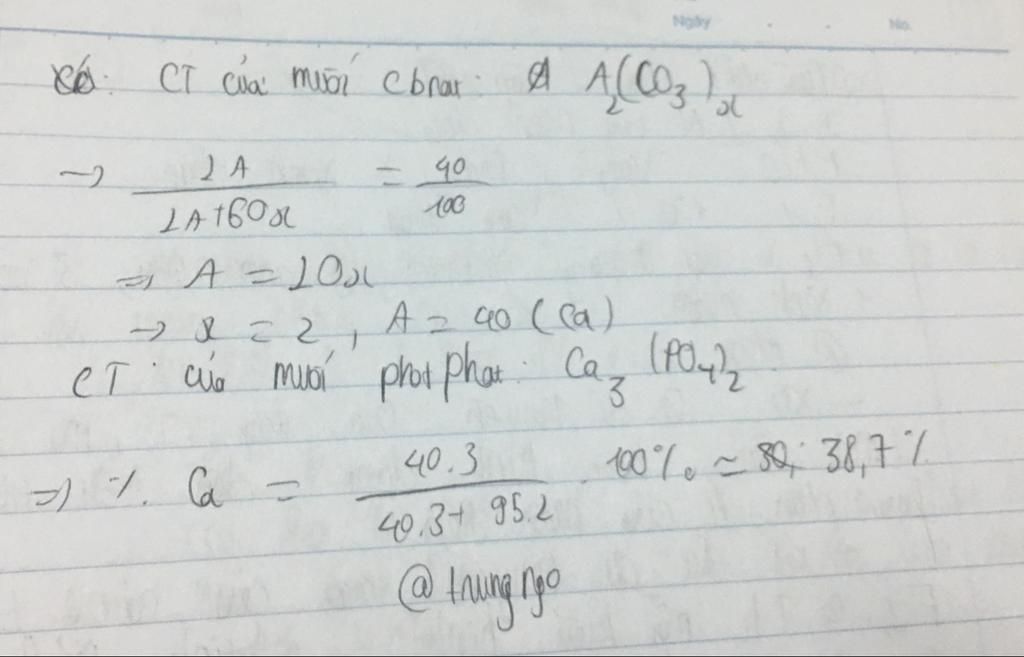 Ngày No.
CT của muối Cbnat: A₂(CO₃)ₓ
→ 2A / (2A + 60x) = 40 / 100
⇒ A = 20x
→ x = 2, A = 40 (Ca)
CT của muối photphat: Ca₃(PO₄)₂
⇒ %. Ca = 40.3 / (40.3 + 95.2) . 100% ≈ 38,7%
@trungngo